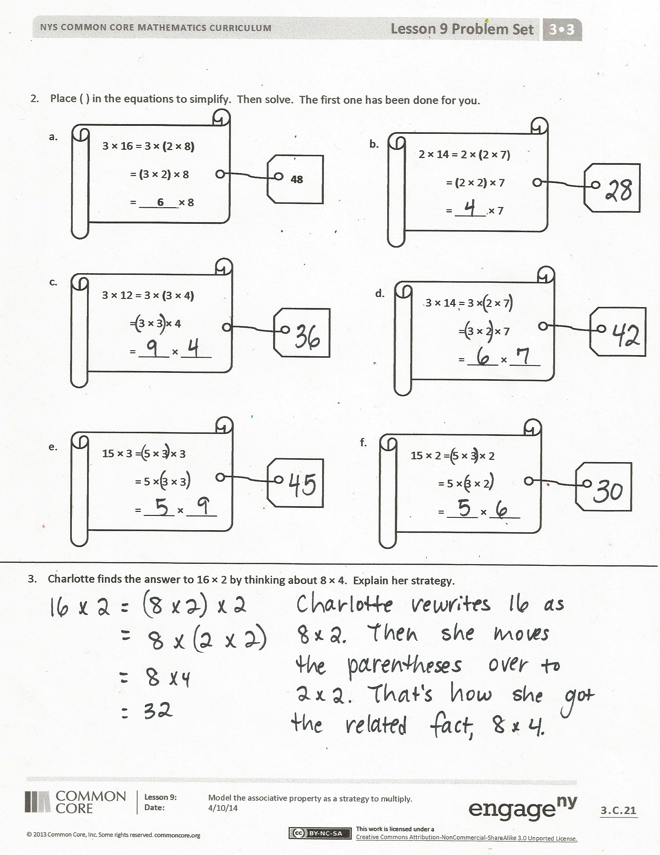 NYS COMMON CORE MATHEMATICS CURRICULUM
Lesson 9 Problem Set 3•3
2. Place ( ) in the equations to simplify. Then solve. The first one has been done for you.
a.
3 × 16 = 3 × (2 × 8)
= (3 × 2) × 8
= 6 × 8
48
b.
2 × 14 = 2 × (2 × 7)
= (2 × 2) × 7
= 4 × 7
28
c.
3 × 12 = 3 × (3 × 4)
=(3 × 3)× 4
= 9 × 4
36
d.
3 × 14 = 3 ×(2 × 7)
=(3 × 2)× 7
= 6 × 7
42
e.
15 × 3 =(5 × 3)× 3
= 5 ×(3 × 3)
= 5 × 9
45
f.
15 × 2 =(5 × 3)× 2
= 5 ×(3 × 2)
= 5 × 6
30
3. Charlotte finds the answer to 16 × 2 by thinking about 8 × 4. Explain her strategy.
16 × 2 = (8 × 2) × 2
= 8 × (2 × 2)
= 8 × 4
= 32
Charlotte rewrites 16 as
8 × 2. Then she moves
the parentheses over to
2 × 2. That's how she got
the related fact, 8 × 4.
COMMON
CORE
Lesson 9:
Date:
Model the associative property as a strategy to multiply.
4/10/14
engage ny
3.C.21
© 2013 Common Core, Inc. Some rights reserved. commoncore.org
cc BY-NC-SA
This work is licensed under a
Creative Commons Attribution-NonCommercial-ShareAlike 3.0 Unported License.